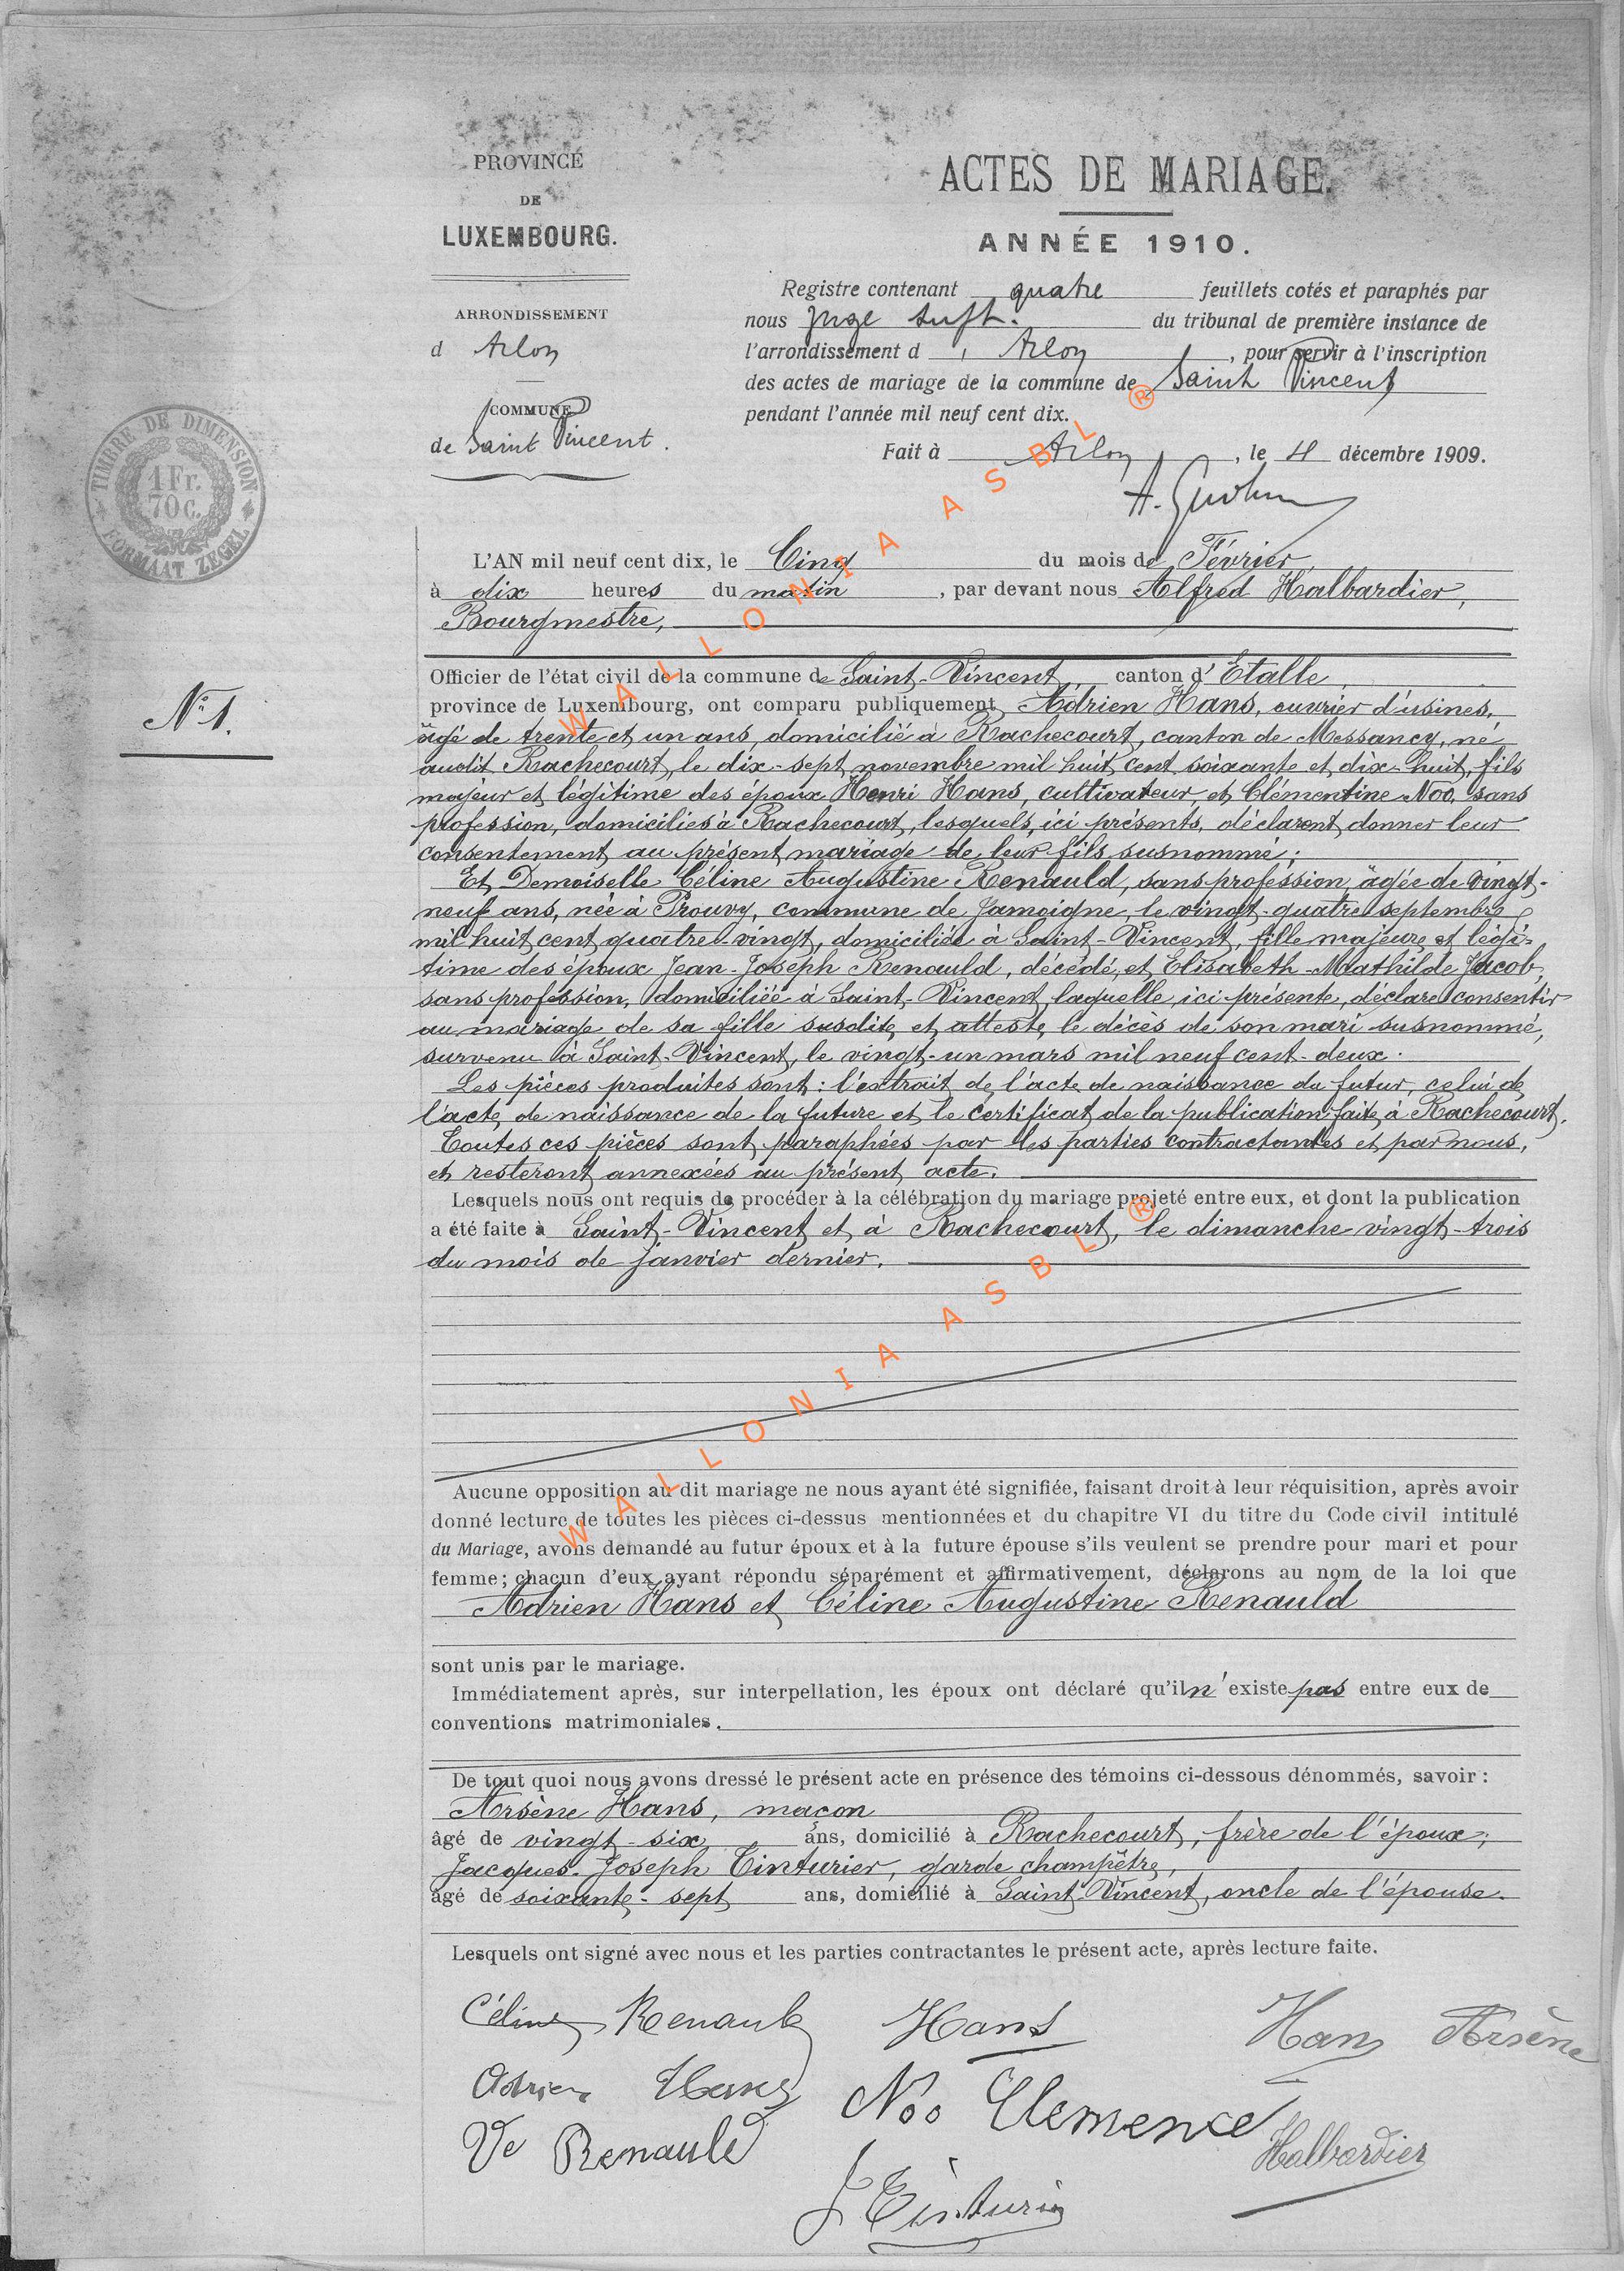 PROVINCE
DE
LUXEMBOURG.
ARRONDISSEMENT
d Arlon
COMMUNE
de Saint Vincent.
TIMBRE DE DIMENSION
1 Fr.
70 C.
FORMAAT ZEGEL
ACTES DE MARIAGE.
ANNÉE 1910.
Registre contenant quatre feuillets cotés et paraphés par
nous Juge du tribunal de première instance de
l'arrondissement d' Arlon, pour servir à l'inscription
des actes de mariage de la commune de Saint Vincent
pendant l'année mil neuf cent dix.
Fait à Arlon, le 4 décembre 1909.
N° 1.
L'AN mil neuf cent dix, le Cinq du mois de Février,
à dix heures du matin, par devant nous Alfred Halbardier,
Bourgmestre,
Officier de l'état civil de la commune de Saint-Vincent, canton d'Etalle,
province de Luxembourg, ont comparu publiquement Adrien Hans, ouvrier d'usines,
âgé de trente et un ans, domicilié à Rachecourt, canton de Messancy, né
audit Rachecourt, le dix-sept novembre mil huit cent soixante et dix-huit, fils
majeur et légitime des époux Henri Hans, cultivateur, et Clémentine Noo, sans
profession, domiciliés à Rachecourt, lesquels, ici présents, déclarent donner leur
consentement au présent mariage de leur fils susnommé;
Et Demoiselle Céline Augustine Renauld, sans profession, âgée de vingt-
neuf ans, née à Prouvy, commune de Jamoigne, le vingt-quatre septembre
mil huit cent quatre-vingt, domiciliée à Saint-Vincent, fille majeure et légi-
time des époux Jean-Joseph Renauld, décédé, et Elisabeth-Mathilde Jacob,
sans profession, domiciliée à Saint-Vincent, laquelle, ici présente, déclare consentir
au mariage de sa fille susdite, et atteste le décès de son mari susnommé,
survenu à Saint-Vincent, le vingt-un mars mil neuf cent-deux.
Les pièces produites sont: l'extrait de l'acte de naissance du futur, celui de
l'acte de naissance de la future et le certificat de la publication faite à Rachecourt.
Toutes ces pièces sont paraphées par les parties contractantes et par nous,
et resteront annexées au présent acte.
Lesquels nous ont requis de procéder à la célébration du mariage projeté entre eux, et dont la publication
a été faite à Saint-Vincent et à Rachecourt, le dimanche vingt-trois
du mois de janvier dernier.
Aucune opposition au dit mariage ne nous ayant été signifiée, faisant droit à leur réquisition, après avoir
donné lecture de toutes les pièces ci-dessus mentionnées et du chapitre VI du titre du Code civil intitulé
du Mariage, avons demandé au futur époux et à la future épouse s'ils veulent se prendre pour mari et pour
femme; chacun d'eux ayant répondu séparément et affirmativement, déclarons au nom de la loi que
Adrien Hans et Céline Augustine Renauld
sont unis par le mariage.
Immédiatement après, sur interpellation, les époux ont déclaré qu'il n'existe pas entre eux de
conventions matrimoniales.
De tout quoi nous avons dressé le présent acte en présence des témoins ci-dessous dénommés, savoir:
Arsène Hans, maçon
âgé de vingt-six ans, domicilié à Rachecourt, frère de l'époux;
Jacques-Joseph Tinturier, garde champêtre,
âgé de soixante-sept ans, domicilié à Saint-Vincent, oncle de l'épouse.
Lesquels ont signé avec nous et les parties contractantes le présent acte, après lecture faite.
Céline Renauld Hans Hans Arsène
Adrien Hans Noo Clemence
Ve Renauld Halbardier
J Tinturier
WALLONIA ASBL ®
WALLONIA ASBL ®